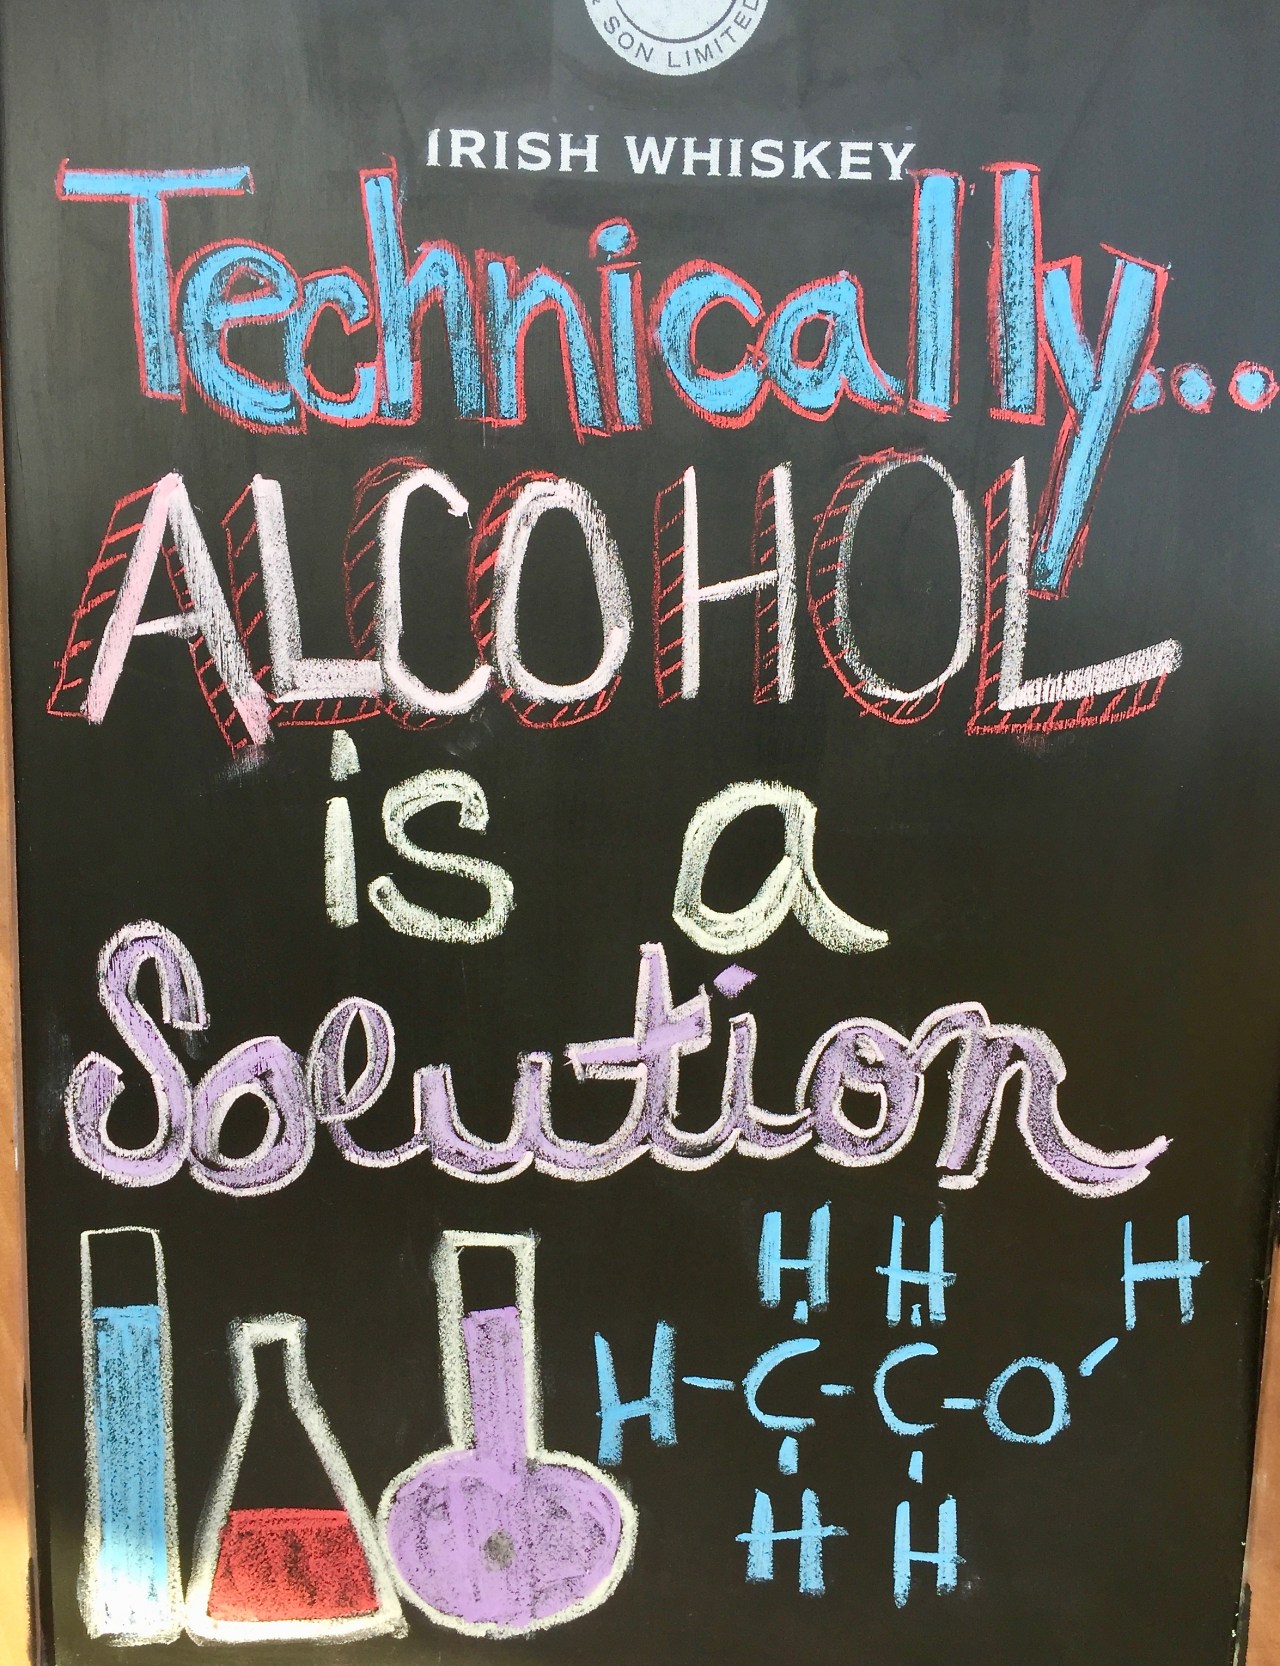 & SON LIMITED
IRISH WHISKEY
Technically...
ALCOHOL
is a
Solution
H H H
H-C-C-O
H H